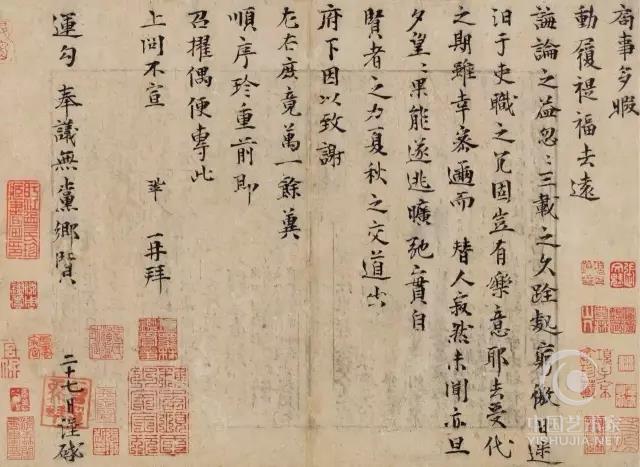 局事多暇
動履禔福去遠
誨論之益忽〻三載之久跧處窮徼日迷
汨于吏職之冗固豈有樂意耶去受代
之期雖幸密邇而替人寂然未聞亦旦
夕望〻果能遂逃曠弛實自
賢者之力夏秋之交道出
府下因以致謝
左右庶竟萬一餘冀
順序珍重前即
召擢偶便專此
上問不宣 鞏 再拜
運勾 奉議無黨鄉賢 二十七日謹啟
中国艺术家
YISHUJIA.NET